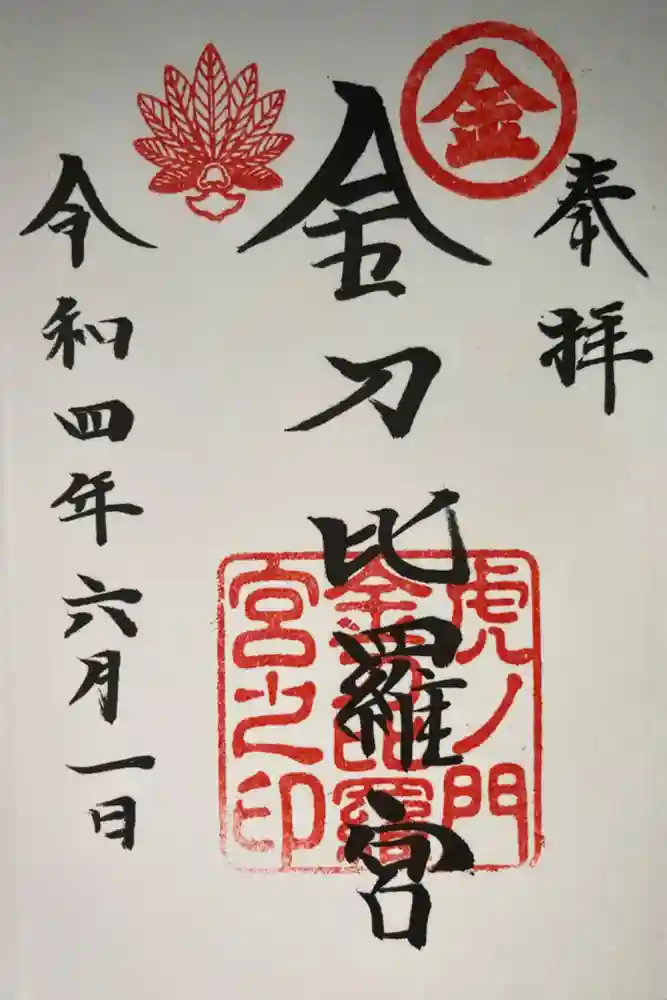 奉拝
金
金刀比羅宮
虎ノ門
金刀比羅
宮之印
令和四年六月一日